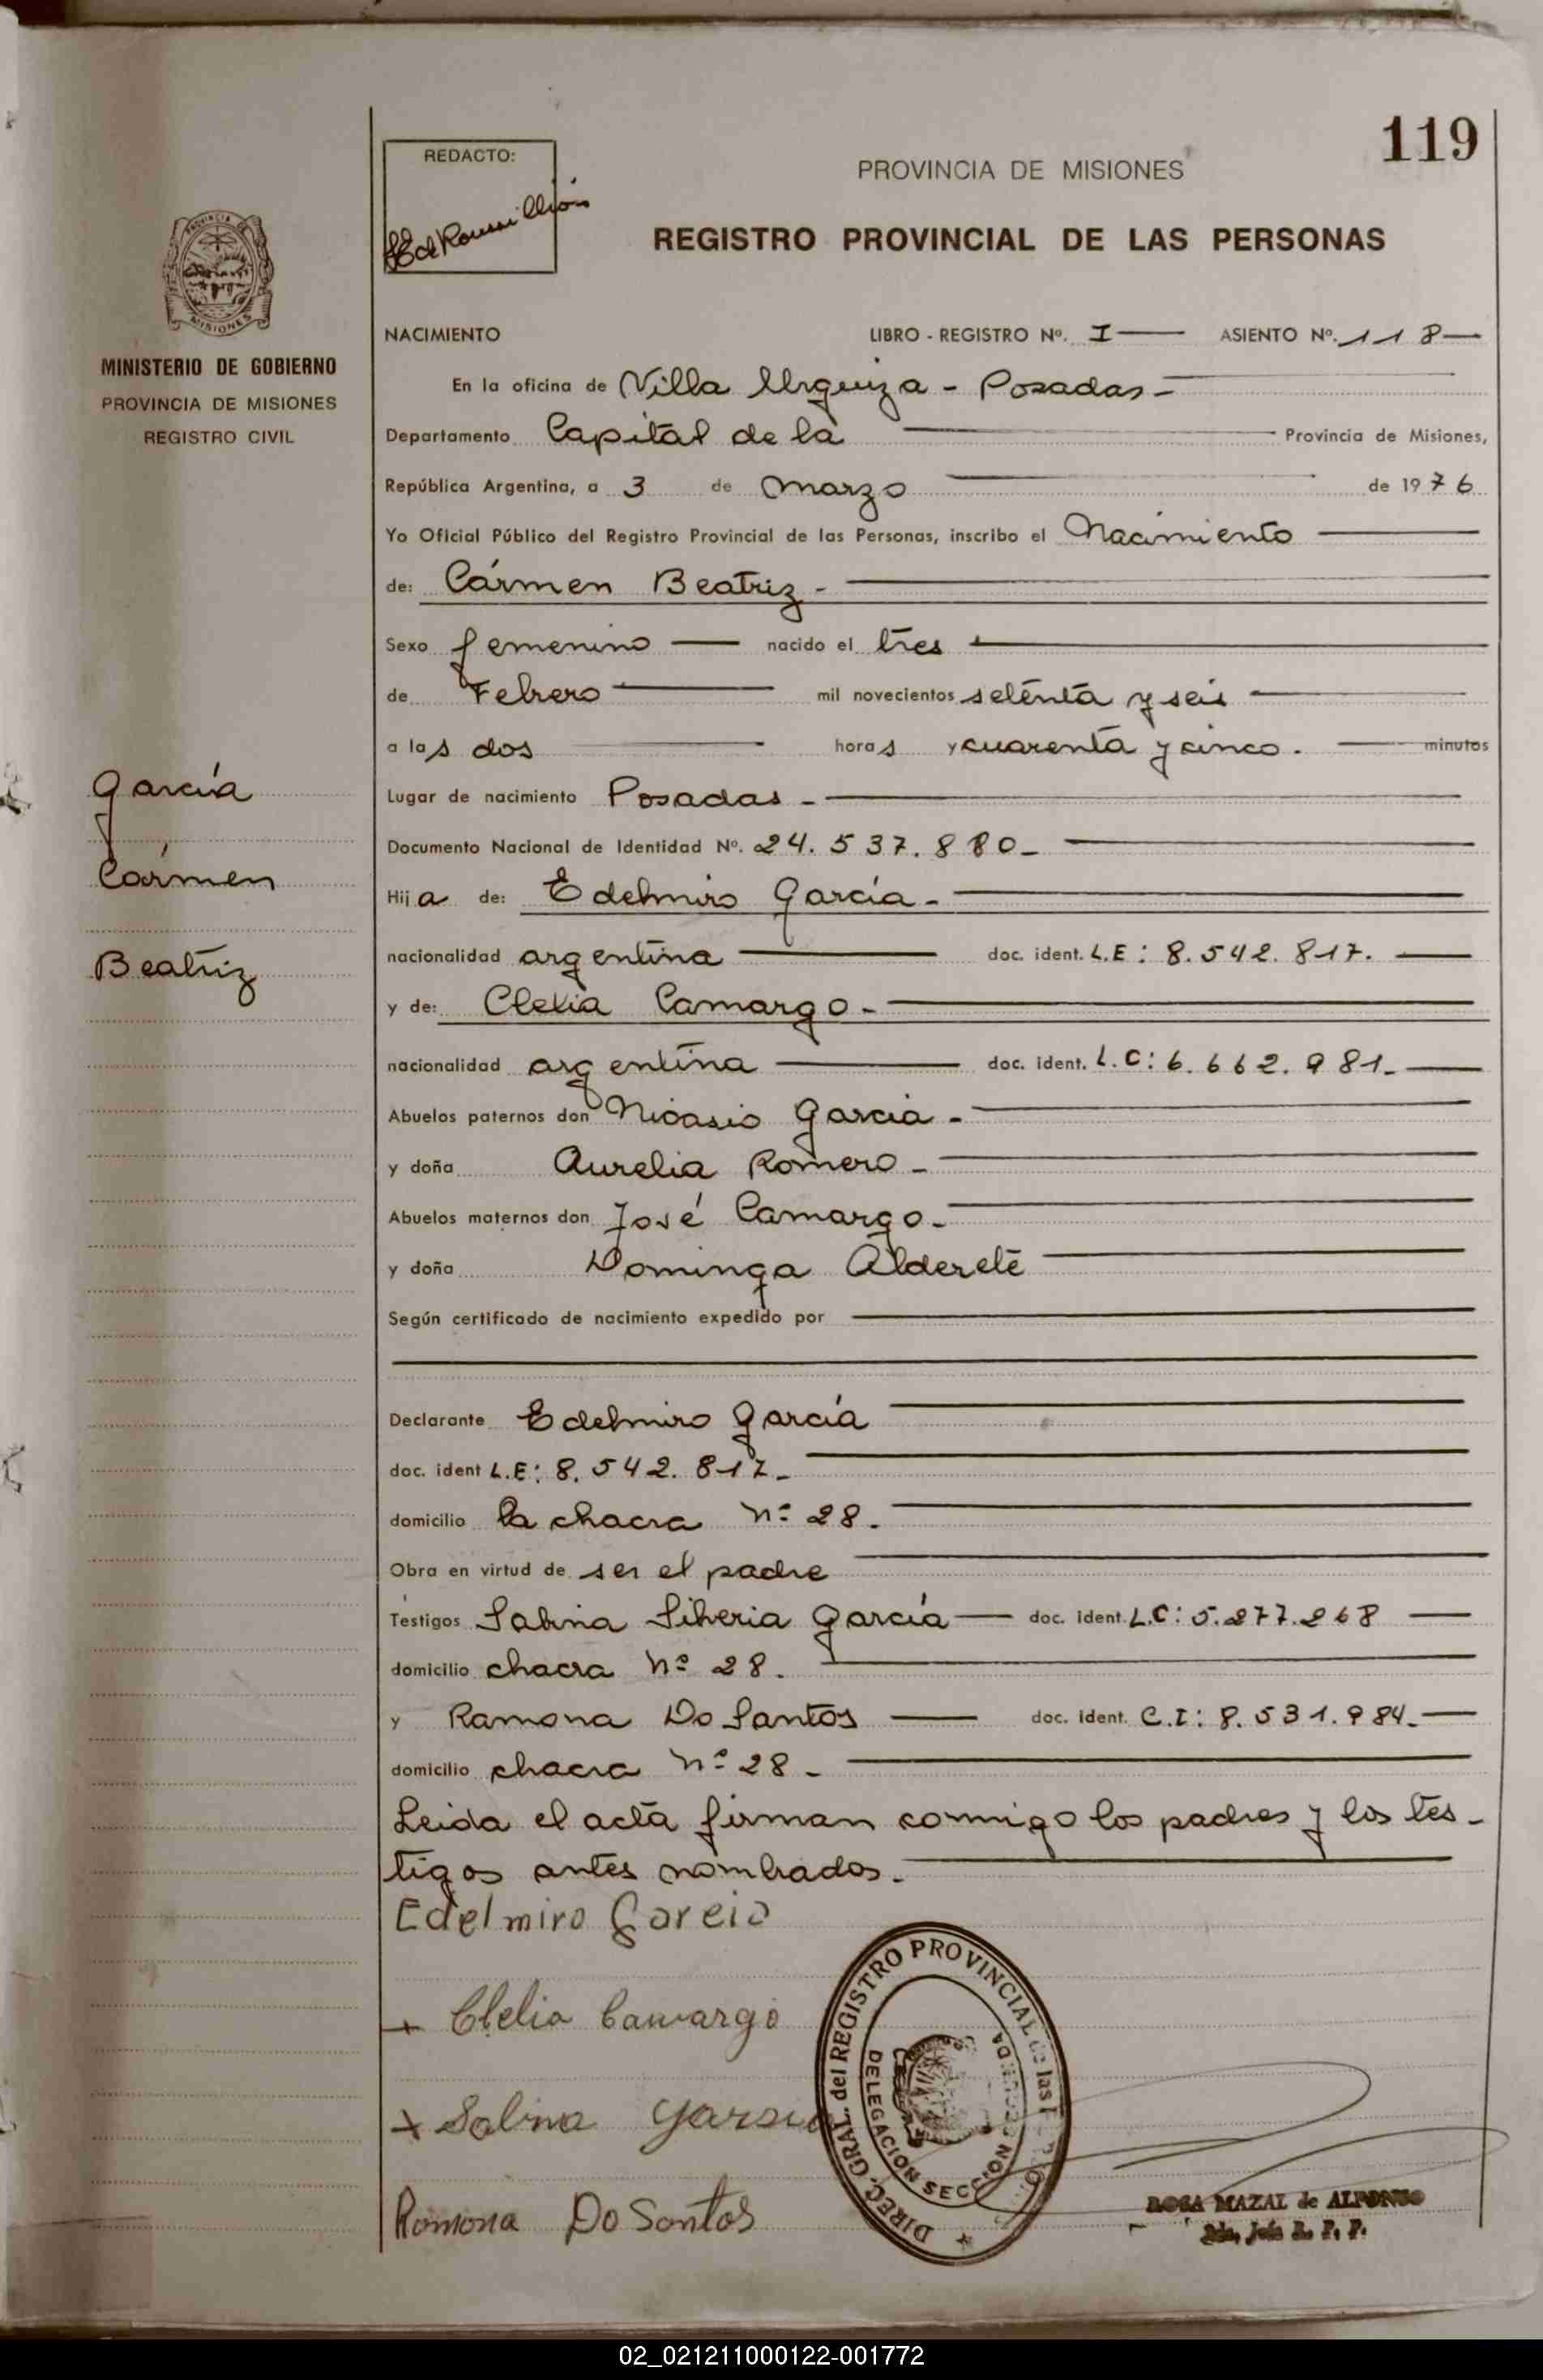 119
REDACTO:
PROVINCIA DE MISIONES
REGISTRO PROVINCIAL DE LAS PERSONAS
PROVINCIA DE
MISIONES
MINISTERIO DE GOBIERNO
PROVINCIA DE MISIONES
REGISTRO CIVIL
NACIMIENTO LIBRO - REGISTRO Nº. I — ASIENTO Nº. 118 —
En la oficina de Villa Urquiza - Posadas -
Departamento Capital de la Provincia de Misiones,
República Argentina, a 3 de Marzo de 1976
Yo Oficial Público del Registro Provincial de las Personas, inscribo el Nacimiento
de: Cármen Beatriz -
Sexo femenino — nacido el tres
de Febrero mil novecientos setenta y seis
a las dos horas y cuarenta y cinco. minutos
García
Cármen
Beatriz
Lugar de nacimiento Posadas -
Documento Nacional de Identidad Nº. 24.537.880 -
Hija de: Edelmiro García -
nacionalidad argentina doc. ident. L.E: 8.542.817.
y de: Clelia Camargo -
nacionalidad argentina doc. ident. L.C: 6.662.981 -
Abuelos paternos don Nicasio García -
y doña Aurelia Romero -
Abuelos maternos don José Camargo -
y doña Dominga Alderete
Según certificado de nacimiento expedido por
Declarante Edelmiro García
doc. ident L.E: 8.542.817 -
domicilio la chacra nº 28.
Obra en virtud de ser el padre
Testigos Sabina Siberia García — doc. ident. L.C: 5.277.268
domicilio chacra Nº 28.
y Ramona Do Santos — doc. ident. C.I: 8.531.984 -
domicilio chacra nº 28 -
Leida el acta firman conmigo los padres y los tes-
tigos antes nombrados.
Edelmiro Garcia
+ Clelia Camargo
+ Sabina Garsia
Ramona Do Santos
DIREC. GRAL. del REGISTRO PROVINCIAL de las
DELEGACION SECCION
ROSA MAZAL de ALFONSO
R. P. P.
02_021211000122-001772